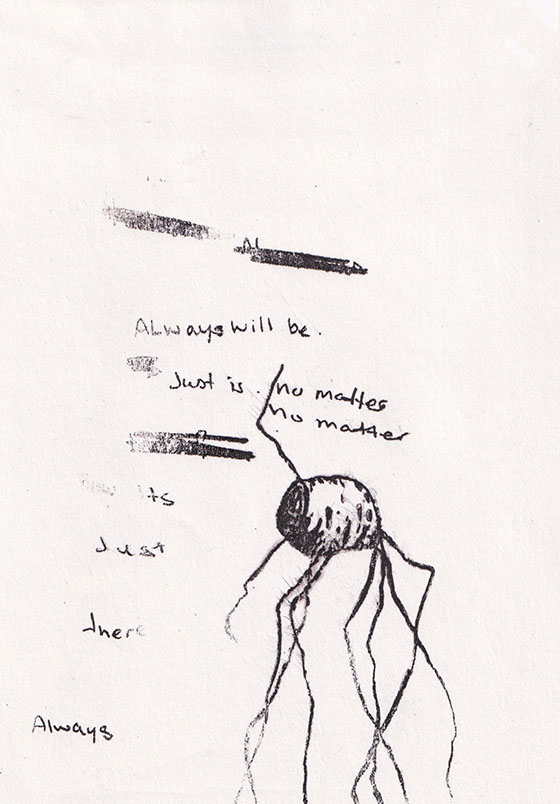 Always will be.
Just is. No matter
No matter
Its
Just
there
Always